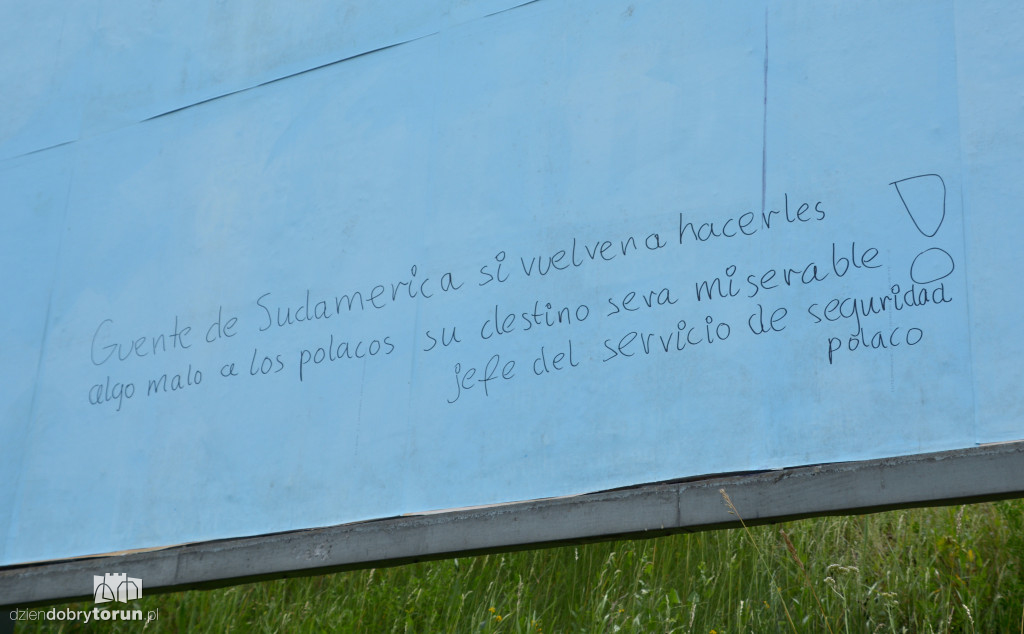 Guente de Sudamerica si vuelven a hacerles
algo malo a los polacos su destino sera miserable!
jefe del servicio de seguridad
polaco
dziendobrytorun.pl